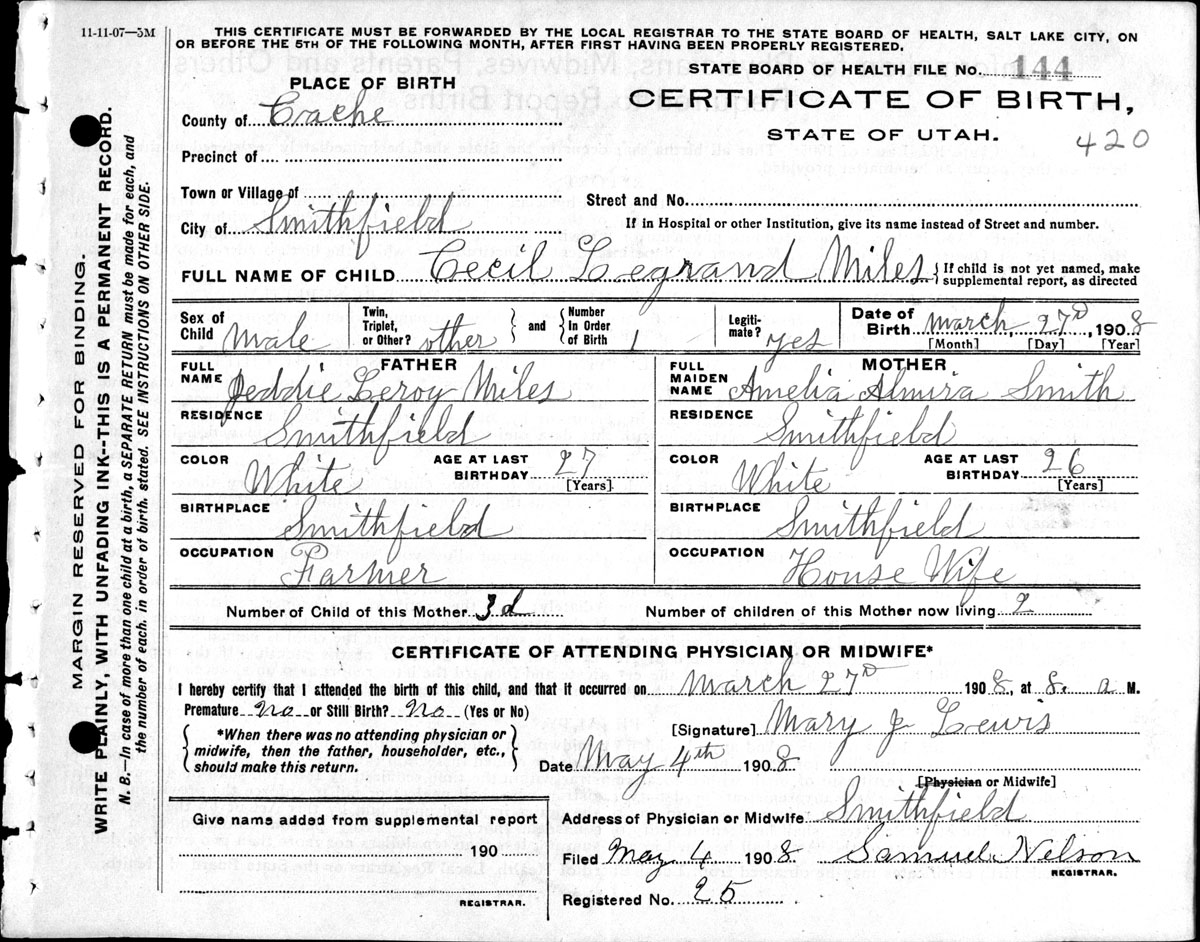 11-11-07—5M
THIS CERTIFICATE MUST BE FORWARDED BY THE LOCAL REGISTRAR TO THE STATE BOARD OF HEALTH, SALT LAKE CITY, ON
OR BEFORE THE 5TH OF THE FOLLOWING MONTH, AFTER FIRST HAVING BEEN PROPERLY REGISTERED.
STATE BOARD OF HEALTH FILE No. 144
PLACE OF BIRTH
CERTIFICATE OF BIRTH,
STATE OF UTAH.
420
County of Cache
Precinct of
Town or Village of
Street and No.
City of Smithfield
If in Hospital or other Institution, give its name instead of Street and number.
FULL NAME OF CHILD Cecil Legrand Miles { If child is not yet named, make
supplemental report, as directed
Sex of Child Male
Twin, Triplet, or Other? other } and { Number In Order of Birth 1
Legiti- mate? yes
Date of Birth March 27D, 1908
[Month] [Day] [Year]
FATHER
FULL NAME Jeddie Leroy Miles
MOTHER
FULL MAIDEN NAME Amelia Almira Smith
RESIDENCE Smithfield
RESIDENCE Smithfield
COLOR White AGE AT LAST BIRTHDAY 27 [Years]
COLOR White AGE AT LAST BIRTHDAY 26 [Years]
BIRTHPLACE Smithfield
BIRTHPLACE Smithfield
OCCUPATION Farmer
OCCUPATION House Wife
Number of Child of this Mother 3d
Number of children of this Mother now living 2
CERTIFICATE OF ATTENDING PHYSICIAN OR MIDWIFE*
I hereby certify that I attended the birth of this child, and that it occurred on March 27D 1908, at 8. a M.
Premature No or Still Birth? No (Yes or No)
*When there was no attending physician or
midwife, then the father, householder, etc.,
should make this return.
[Signature] Mary J Lewis
Date May 4th 1908
[Physician or Midwife]
Give name added from supplemental report
190
REGISTRAR.
Address of Physician or Midwife Smithfield
Filed May 4 1908 Samuel Nelson
REGISTRAR.
Registered No. 25
MARGIN RESERVED FOR BINDING.
WRITE PLAINLY, WITH UNFADING INK--THIS IS A PERMANENT RECORD.
N. B.—In case of more than one child at a birth, a SEPARATE RETURN must be made for each, and
the number of each, in order of birth, stated. SEE INSTRUCTIONS ON OTHER SIDE.